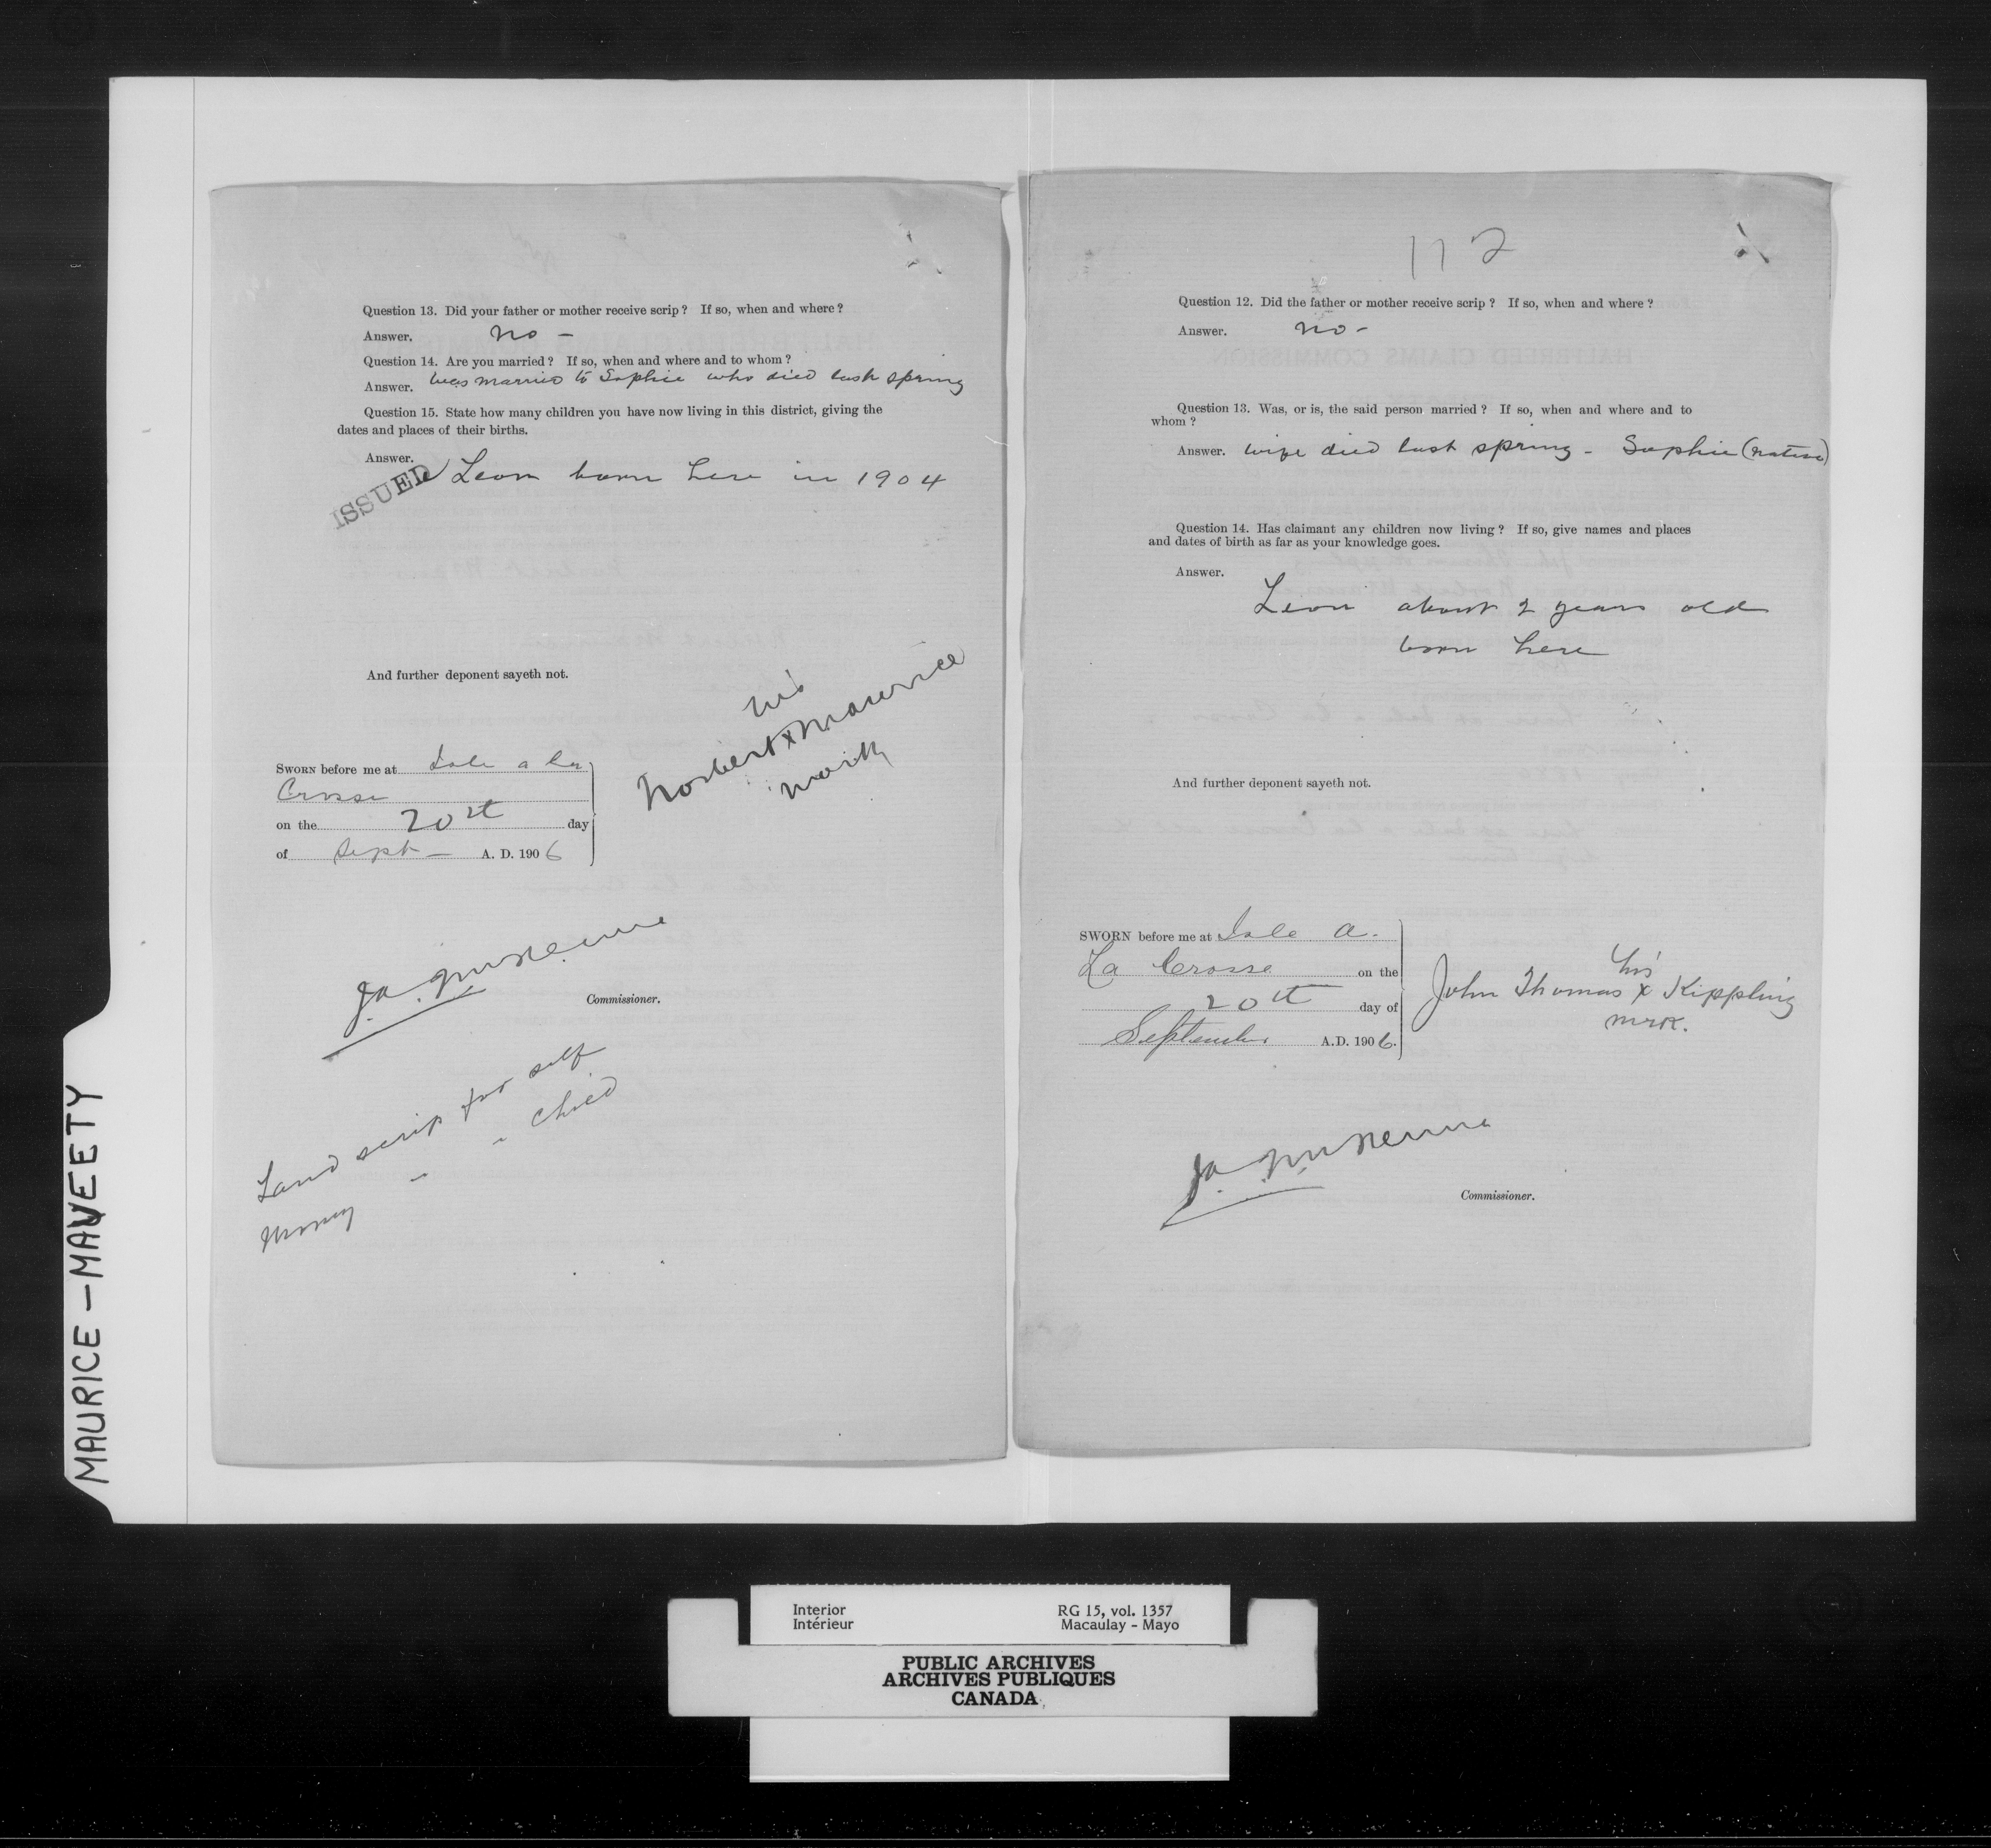 MAURICE - MAVEETY
Question 13. Did your father or mother receive scrip? If so, when and where?
Answer. no -
Question 14. Are you married? If so, when and where and to whom?
Answer. Was married to Sophie who died last spring
Question 15. State how many children you have now living in this district, giving the
dates and places of their births.
Answer.
ISSUED Leon born here in 1904
And further deponent sayeth not.
his
Norbert x Maurice
mark
SWORN before me at Isle a la
Crosse
on the 20th day
of Sept - A. D. 1906
Commissioner.
Land scrip for self
Money " " child
112
Question 12. Did the father or mother receive scrip? If so, when and where?
Answer. no -
HALFBREED CLAIMS COMMISSION
Question 13. Was, or is, the said person married? If so, when and where and to
whom?
Answer. wife died last spring - Sophie (native)
Question 14. Has claimant any children now living? If so, give names and places
and dates of birth as far as your knowledge goes.
Answer.
Leon about 2 years old
born here
And further deponent sayeth not.
SWORN before me at Isle a.
La Crosse on the
20th day of
September A.D. 1906.
his
John Thomas x Kippling
mark.
Commissioner.
Interior RG 15, vol. 1357
Intérieur Macaulay - Mayo
PUBLIC ARCHIVES
ARCHIVES PUBLIQUES
CANADA